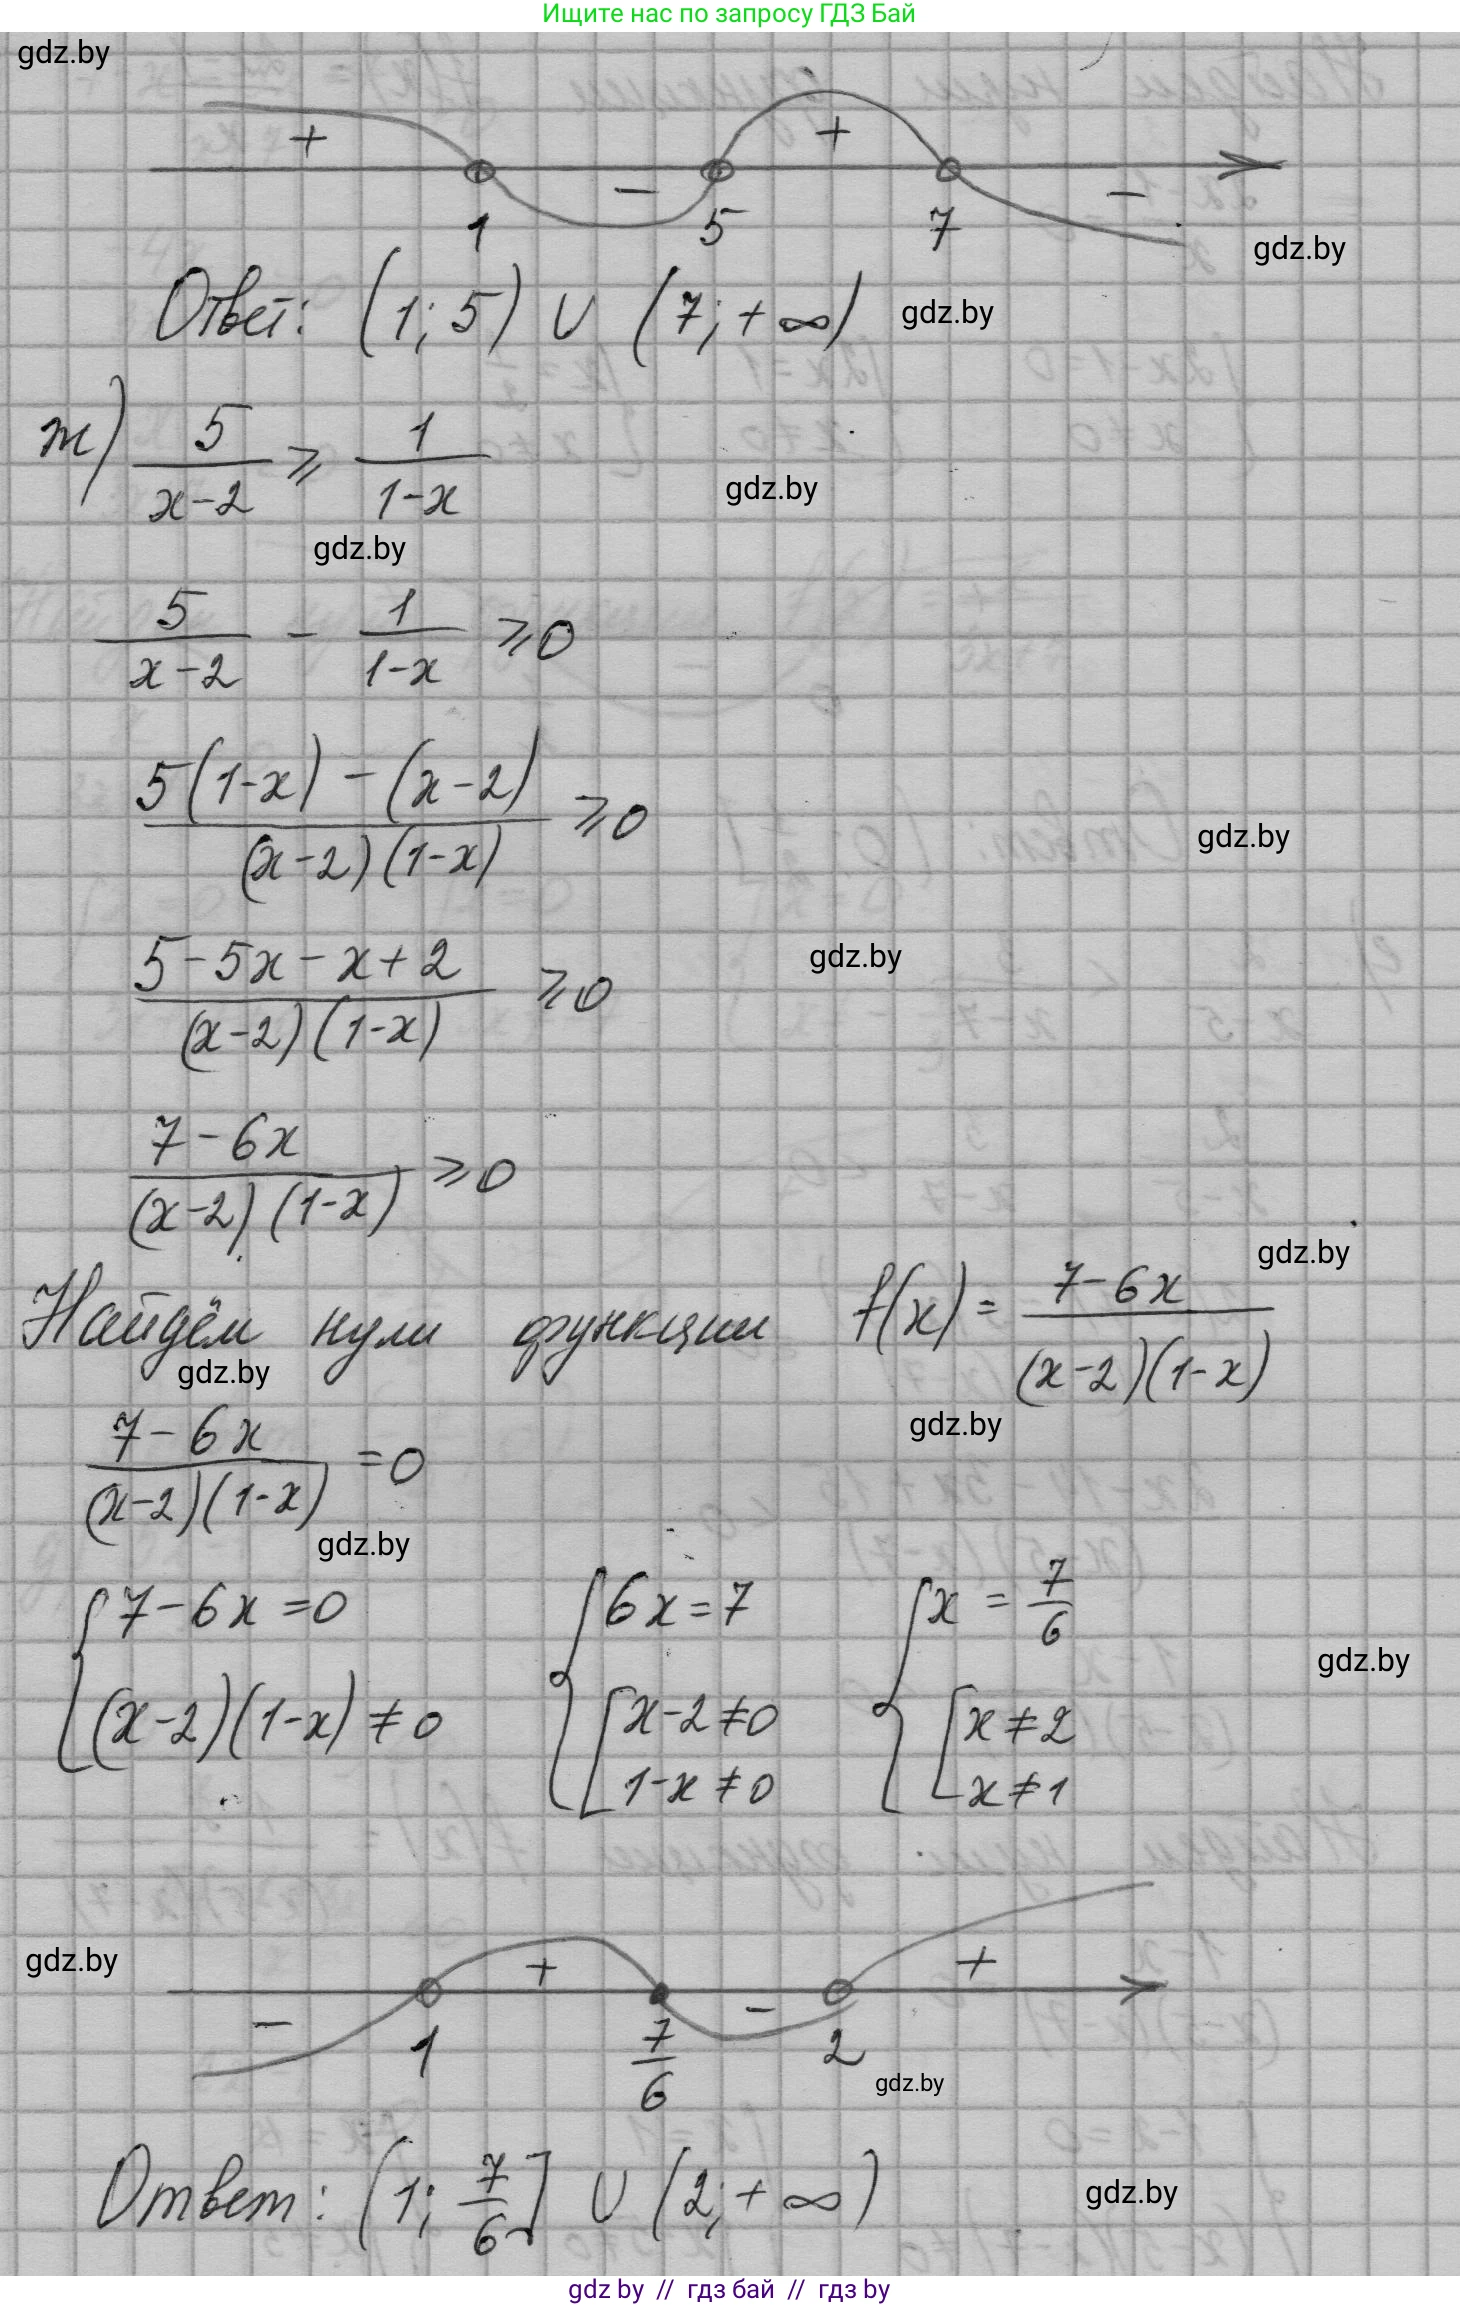 Ищите нас по запросу ГДЗ Бай
gdz.by
+ − + −
1 5 7
gdz.by
Ответ: (1; 5) ∪ (7; +∞)
gdz.by
ж) 5/(x-2) ⩾ 1/(1-x)
gdz.by
gdz.by
5/(x-2) - 1/(1-x) ⩾ 0
(5(1-x) - (x-2))/((x-2)(1-x)) ⩾ 0
gdz.by
(5-5x-x+2)/((x-2)(1-x)) ⩾ 0
gdz.by
(7-6x)/((x-2)(1-x)) ⩾ 0
gdz.by
Найдём нули функции f(x) = (7-6x)/((x-2)(1-x))
gdz.by
gdz.by
(7-6x)/((x-2)(1-x)) = 0
gdz.by
{ 7-6x=0 { 6x=7 { x = 7/6
gdz.by
(x-2)(1-x) ≠ 0 [ x-2≠0 [ x≠2
1-x≠0 x≠1
gdz.by
− + − +
1 7/6 2
gdz.by
Ответ: (1; 7/6] ∪ (2; +∞)
gdz.by
gdz by // гдз бай // гдз by